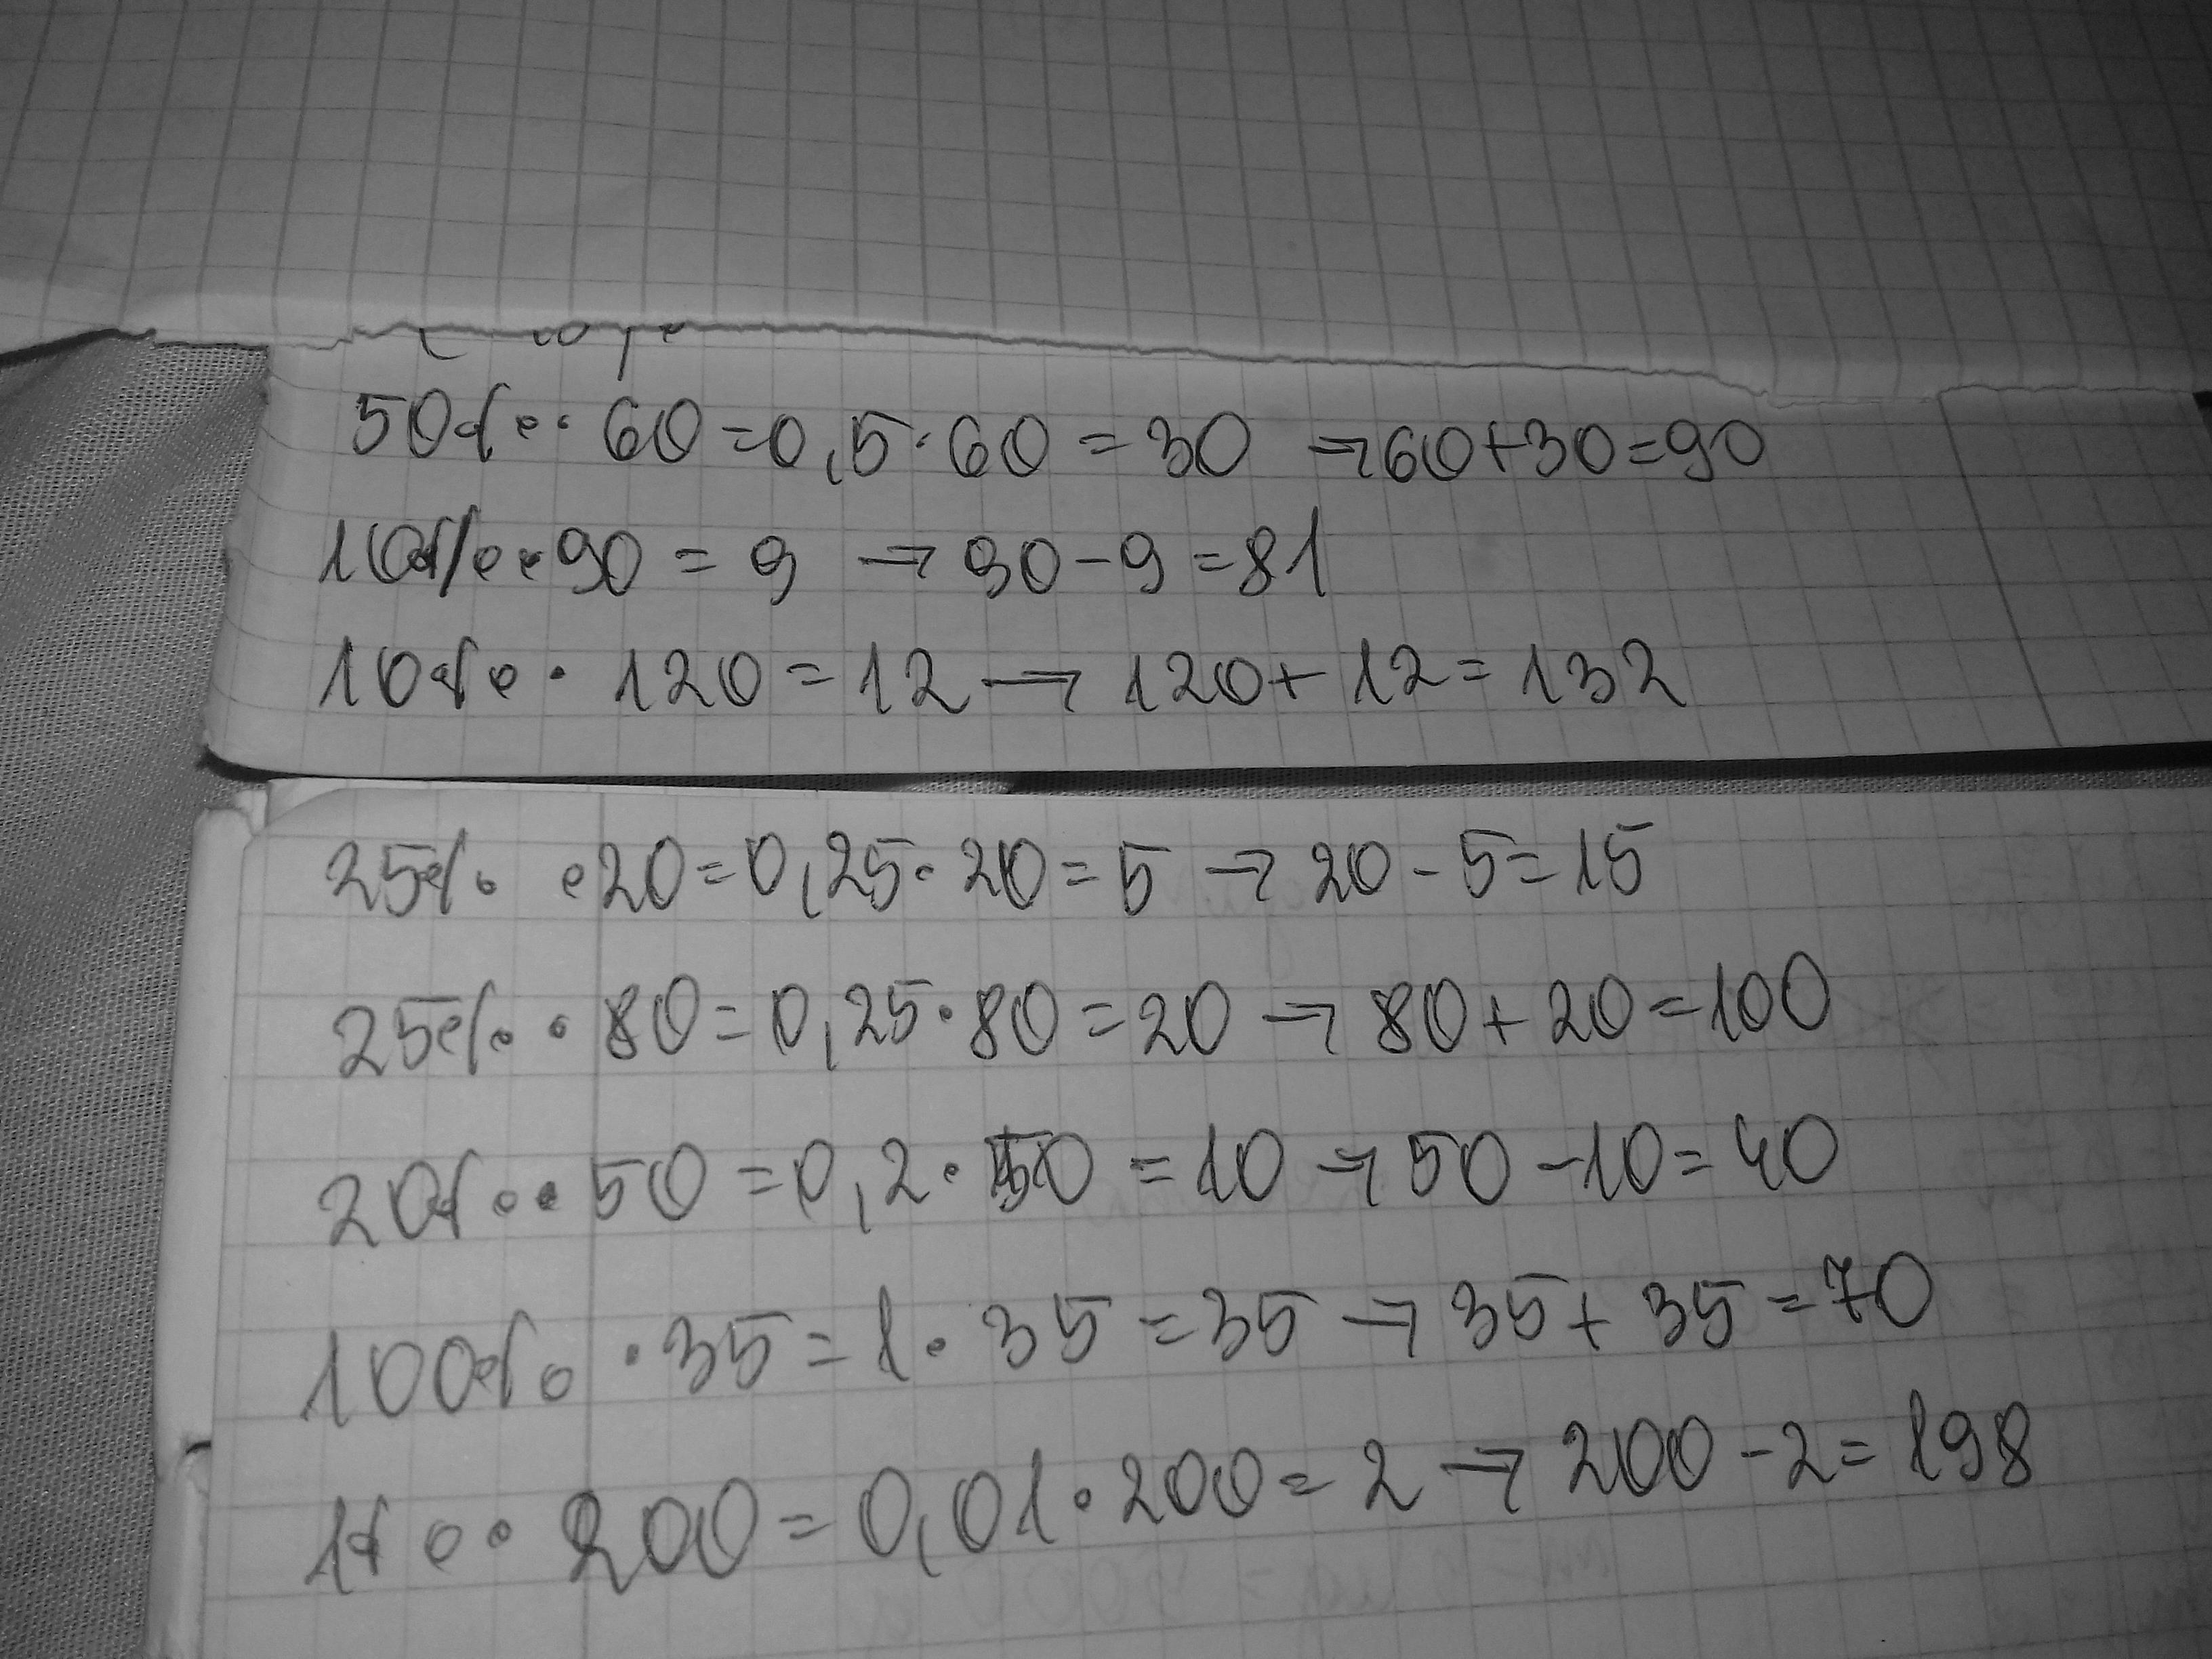 50% · 60 = 0,5 · 60 = 30 → 60 + 30 = 90
10% · 90 = 9 → 90 - 9 = 81
10% · 120 = 12 → 120 + 12 = 132
25% · 20 = 0,25 · 20 = 5 → 20 - 5 = 15
25% · 80 = 0,25 · 80 = 20 → 80 + 20 = 100
20% · 50 = 0,2 · 50 = 10 → 50 - 10 = 40
100% · 35 = 1 · 35 = 35 → 35 + 35 = 70
1% · 200 = 0,01 · 200 = 2 → 200 - 2 = 198